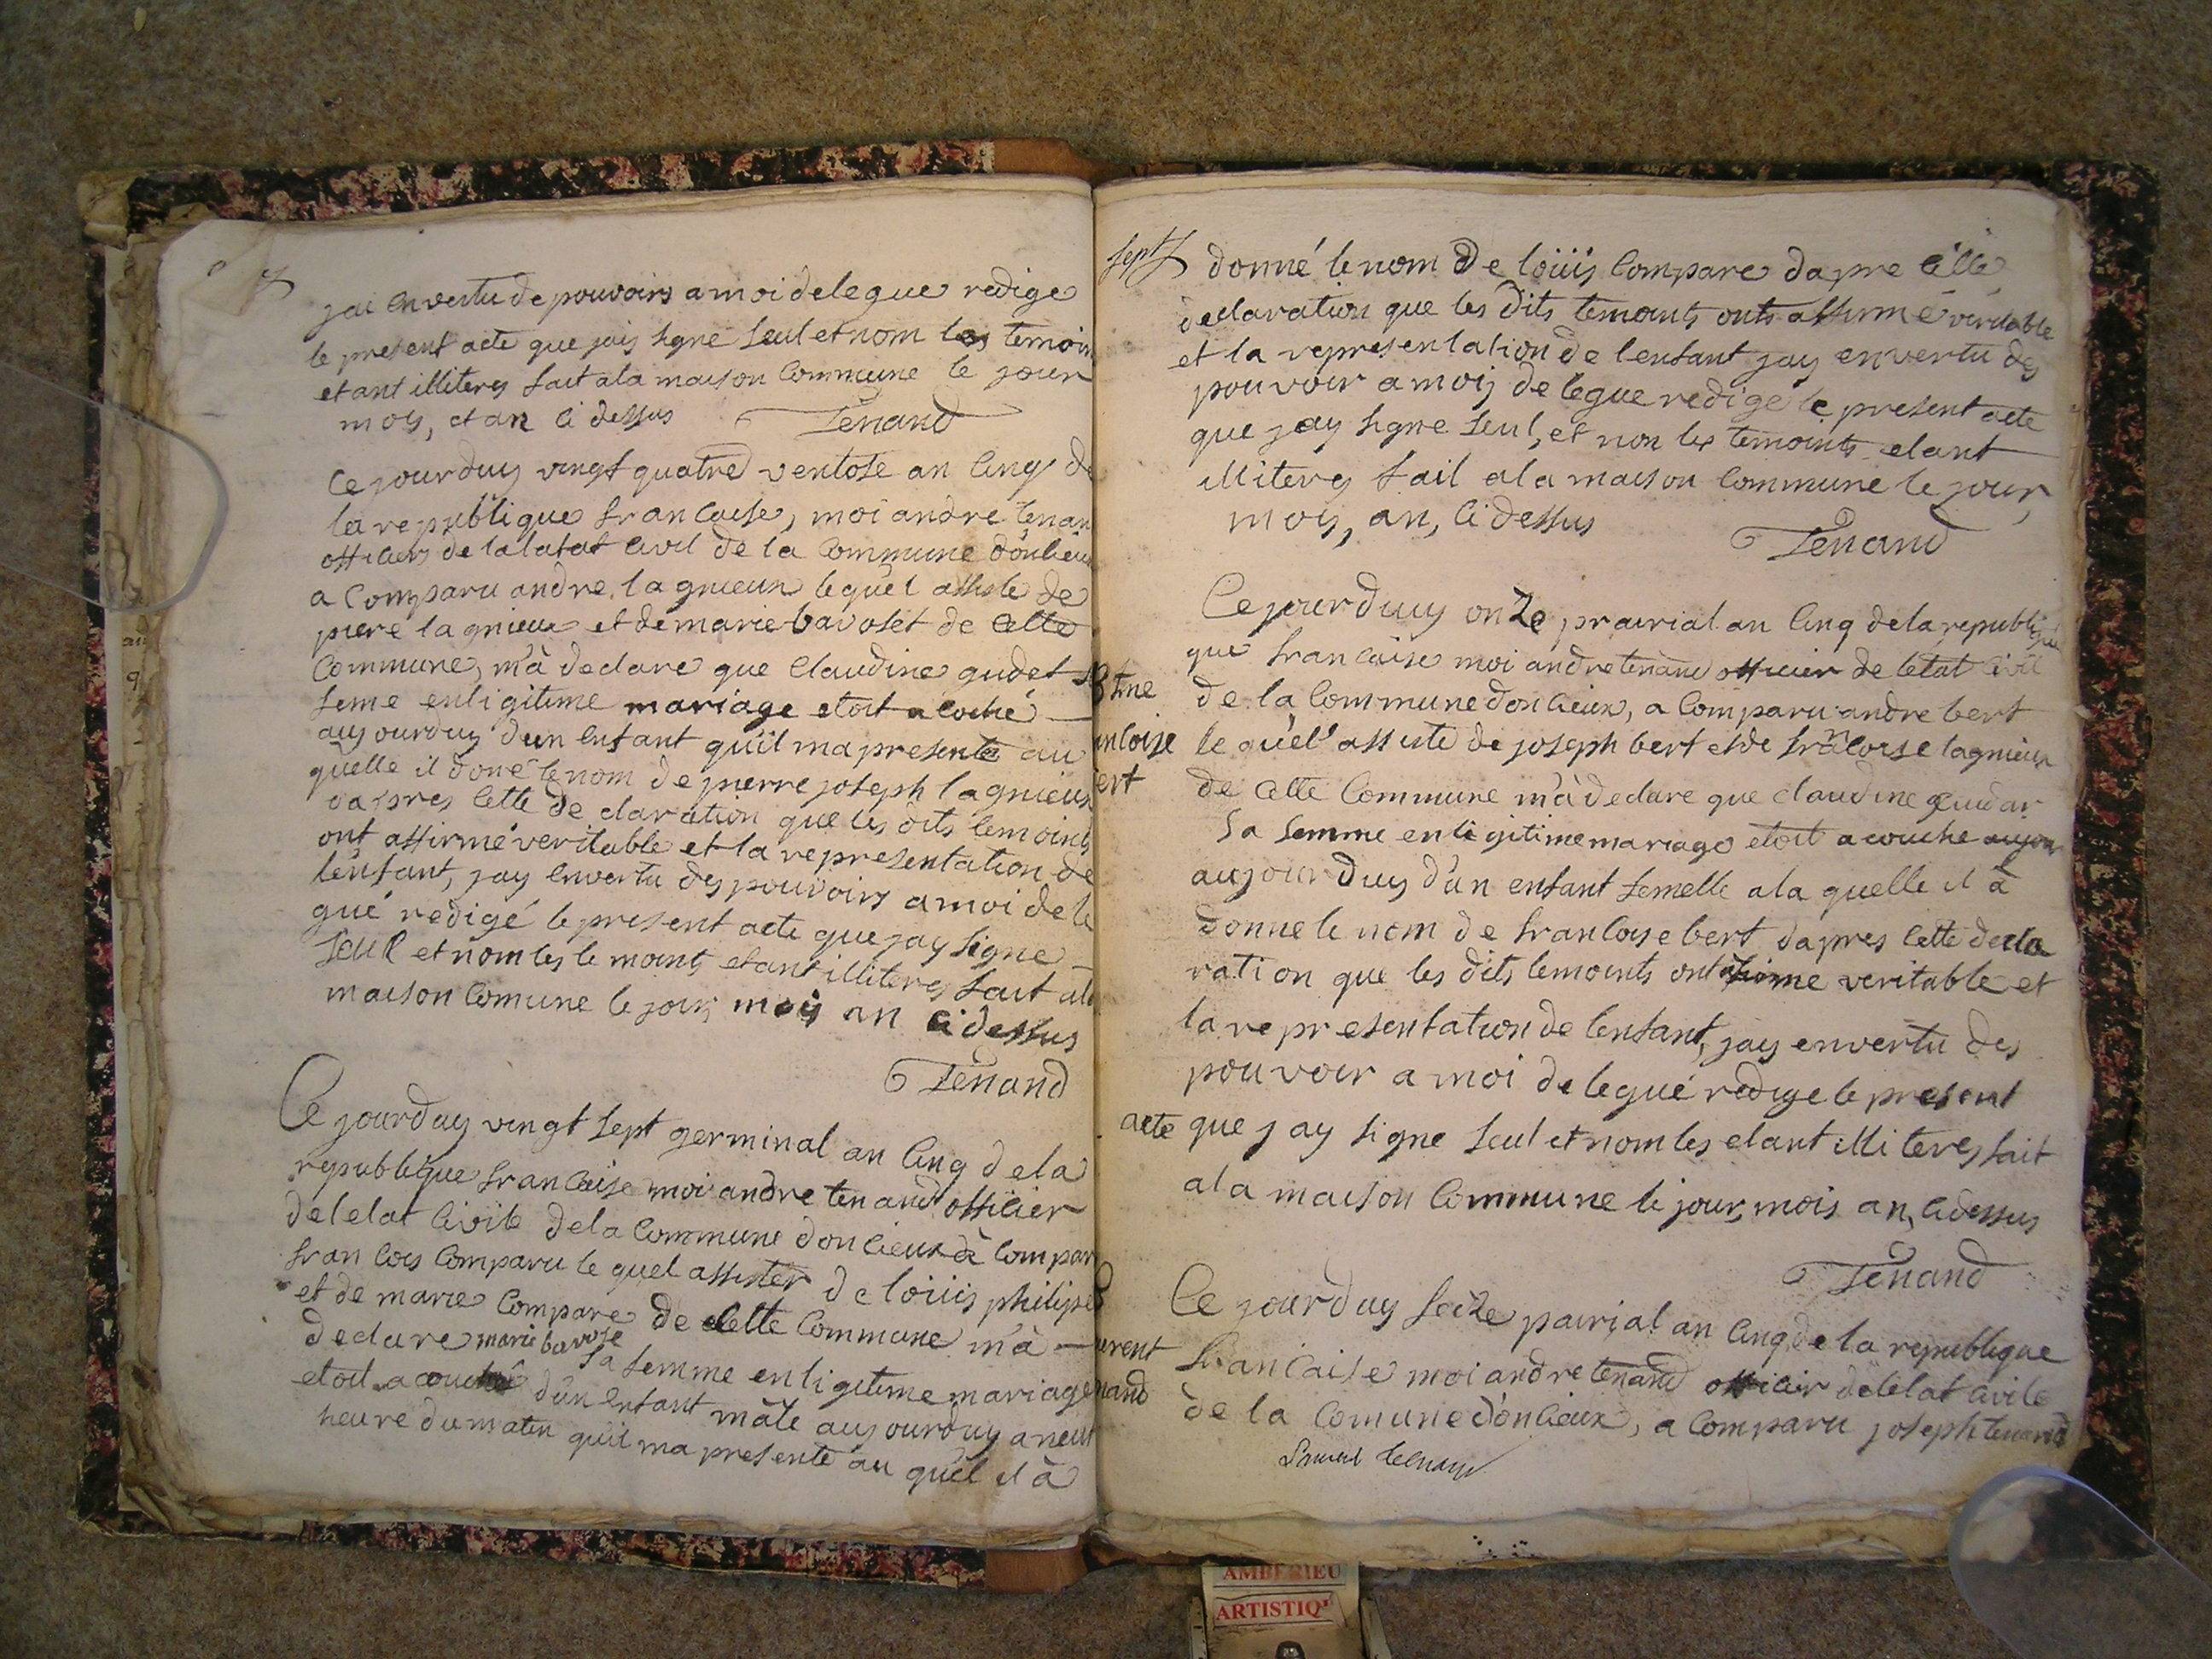 jai en vertu de pouvoirs a moi delegue redige
le present acte que jais signe seul et nom les temoin
etant illiteres fait ala maison Commune le jour
mois, et an ci dessus Tenand
Ce jourduy vingt quatre ventose an cinq de
la republique francaise, moi andre tenan
officiers de lalatat civil de la Commune donlieux
a Comparu andre lagnieux lequel assiste de
piere lagnieux et de marie bavoset de Cette
Commune, m'à declare que Claudine gudet sa
feme enligitime mariage etoit acoché
aujourduy d'un enfant qu'il ma presente au
quelle il doné le nom de pierre joseph lagnieux
dapres Cette declaration que les dits temoints
ont affirmé veritable et la representation de
lenfant, jay en vertu des pouvoirs a moi dele
gué redigé le present acte que jay signe
seul et nom les temoints etant illiteres fait ala
maison Comune le jour, mois an ci dessus
Tenand
Ce jourduy vingt sept germinal an cinq dela
republique francaise moi andre tenand officier
delelat Civile dela Commune doncieux à compar
francois Comparu le quel assister de loiiis philipe
et de marie Compare de Cette Commune m'à
declare marie bavose sa femme enligitime mariage
etoit acouché d'un enfant mâle aujourduy a neuf
heure dumaten quil ma presente au quel il à
sept
donné le nom De loüis Compare dapre Cette
declaration que les dits temoints onts affirmé veritable
et la representation de lenfant jay envertu des
pouvoir a moij delegue redigé le present acte
que jay signe seul, et non les temoints etant
illiteres fait ala maison Commune le jour,
mois, an, ci dessus
Tenand
Ce jourduy onze prairial an Cinq dela republique
que francaise moi andre tenand officier de letat Civil
de la Commune doncieux, a Comparu andre bert
le quel assiste de joseph bert et de francoise lagnieux
de Cette Commune m'à declare que claudine guidar
sa femme enligitime mariage etoit acouche aujour
aujourduy d'un enfant femelle ala quelle il à
donne le nom de francoise bert dapres Cette decla
ration que les dits temoints ont afirme veritable et
la representation de lenfant, jay envertu des
pouvoir a moi delegué redige le present
acte que jay signe seul et nom les etant illiteres fait
ala maison Commune le jour, mois an, ci dessus
Tenand
Ce jourduy seize pairial an Cinq de la republique
francaise moi andre tenand officier delelat Civile
de la Comune doncieux, a Comparu joseph tenand
AMBERIEU
ARTISTIQ